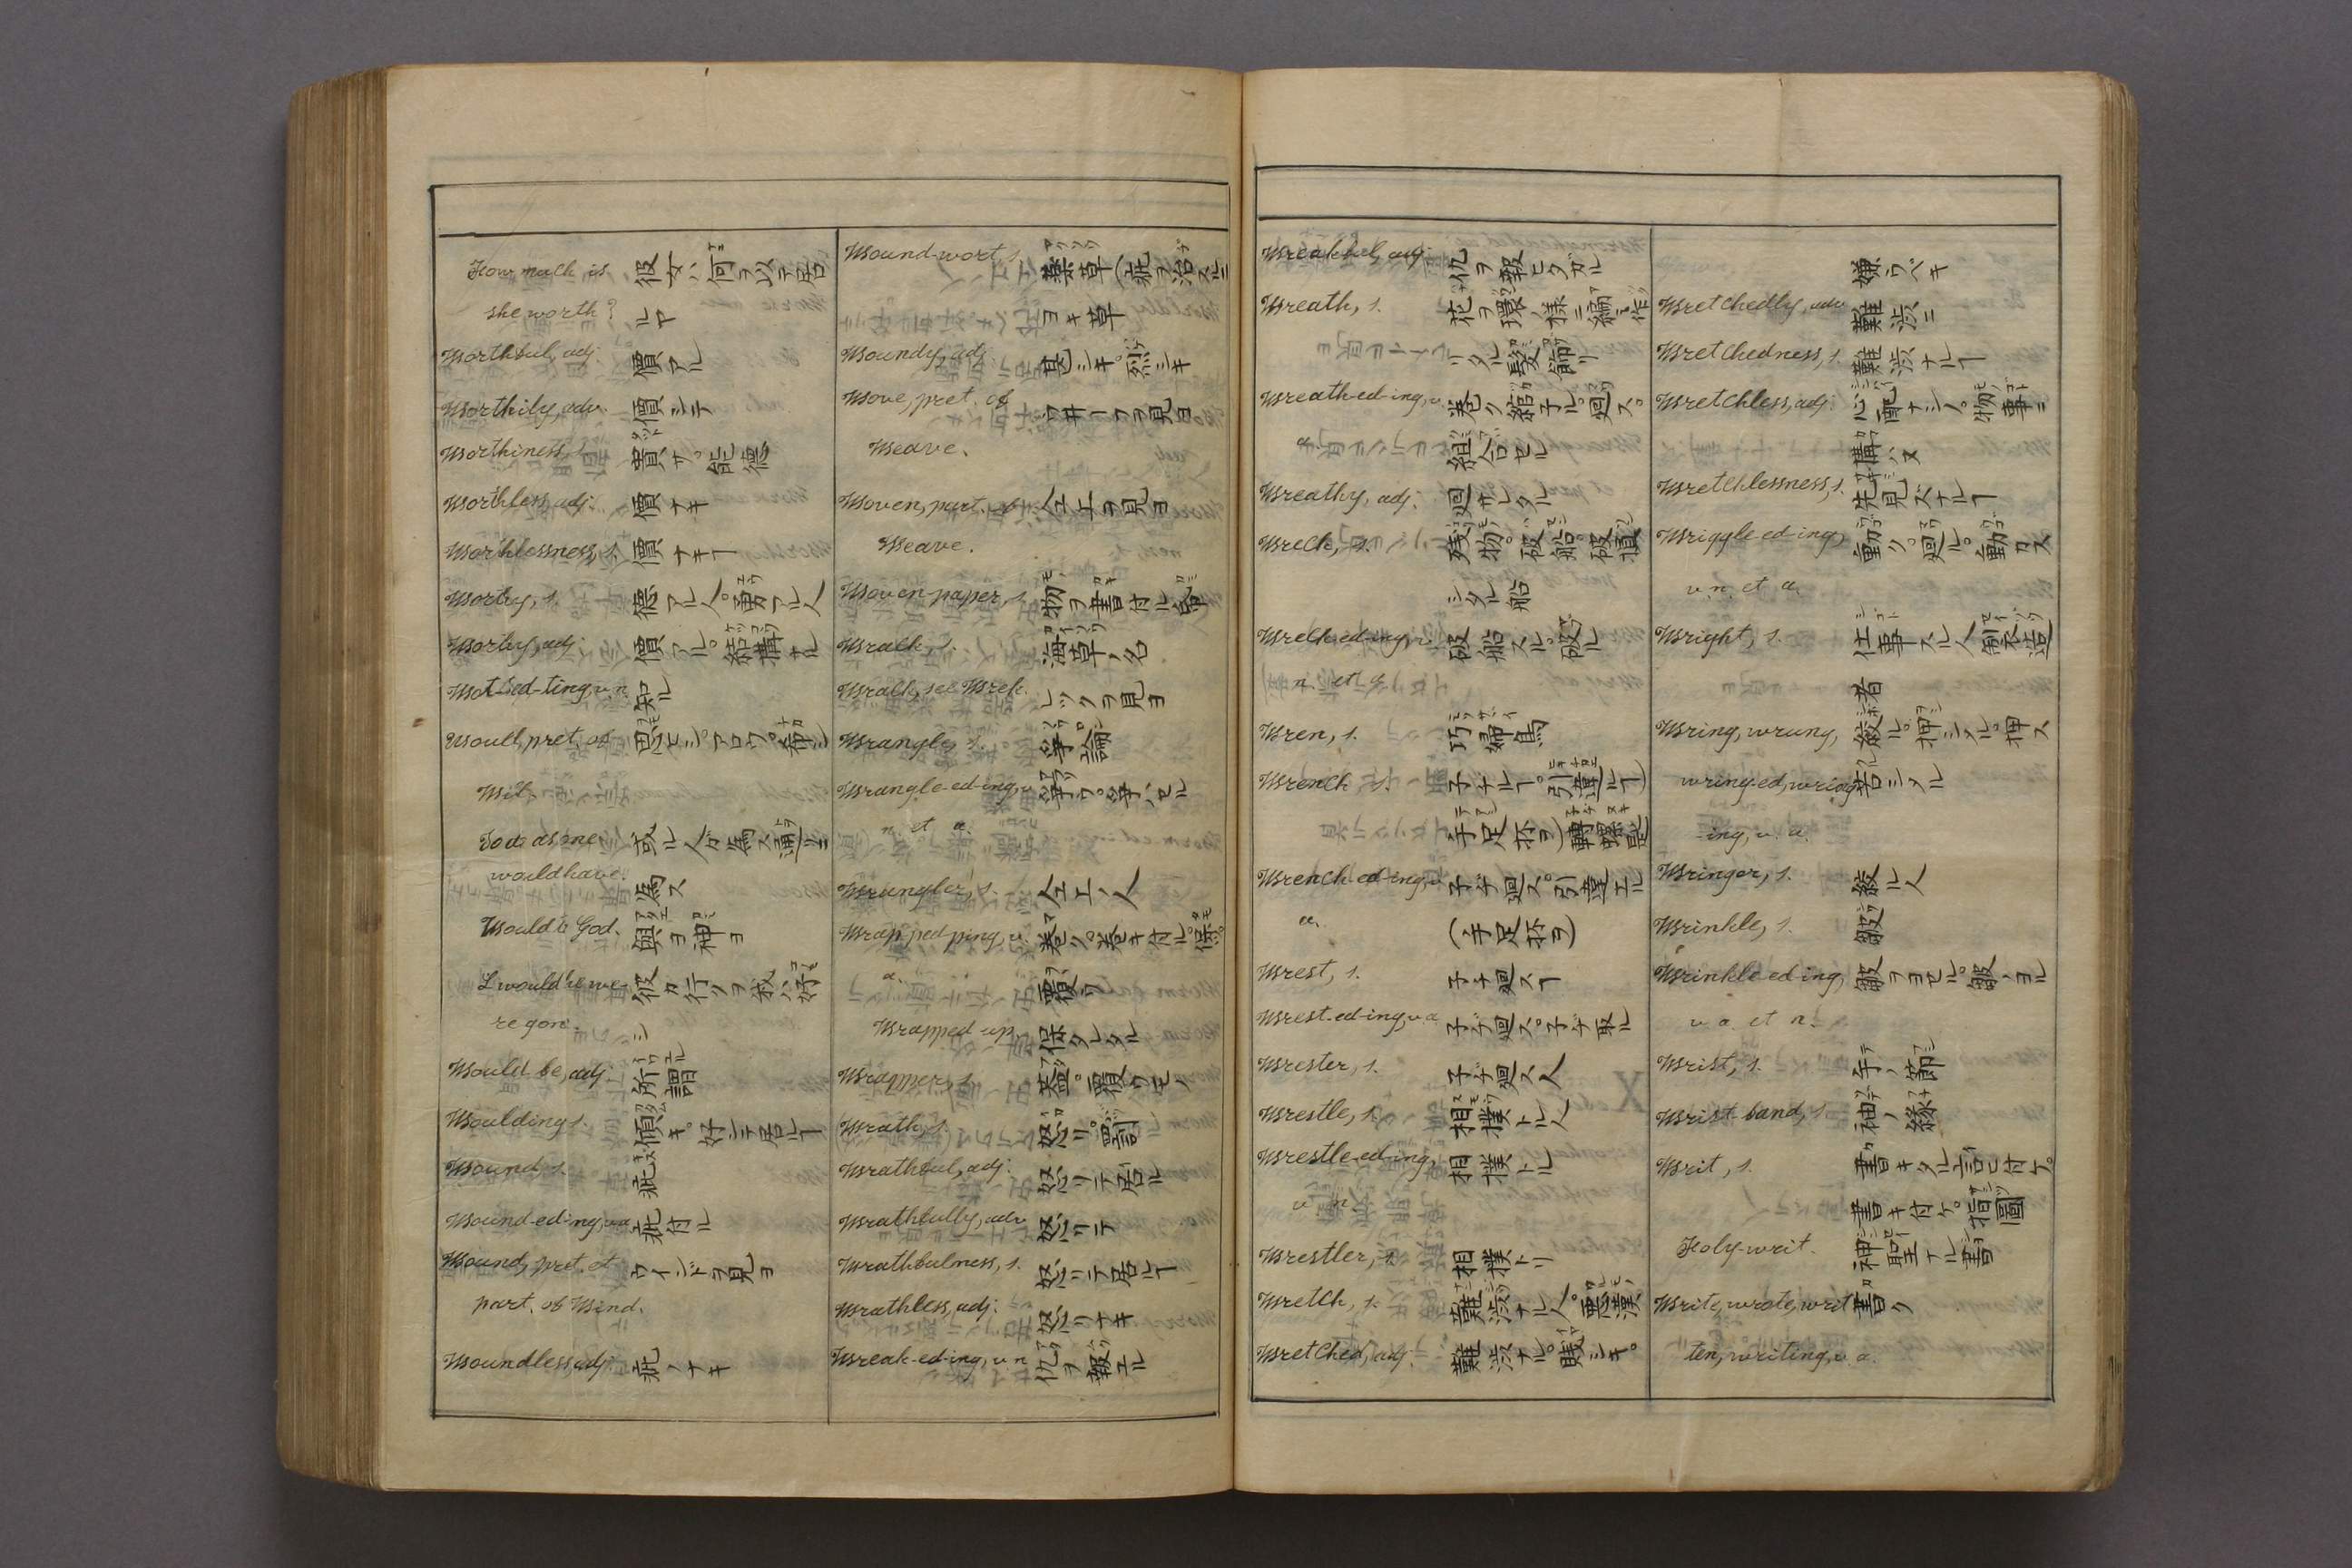 How much is 彼女ハ何ヲ以テ居
she worth? ルヤ
Worthful, adj. 價アル
Worthily, adv. 價シテ
Worthiness, s. 貴サ。能德
Worthless, adj. 價ナキ
Worthlessness, s. 價ナキヿ
Worthy, s. 德アル人。勇アル人
Worthy, adj. 價アル。結構ナル
Wot-ted-ting, v.n. 知ル
Would, pret. of
Will.
To do as me 或ル人ガ為ス通リニ
would have. 為ス
Would to God.
I would he we-
re gone.
Would be, adj. 所謂
Woulding s. 傾キ。好ンテ居ルヿ
Wound, s. 疵
Wound-ed-ing, v.a. 疵付ル
Wound, pret. et ウインドヲ見ヨ
part. of Wind.
Woundless, adj. 疵ノナキ
Wound-wort, s. 藥草(疵ヲ治スルニ
ヨキ草
Woundy, adj. 甚シキ。烈シキ
Wove, pret. of ウ井ーフヲ見ヨ
Weave.
Woven, part. of 仝上ヲ見ヨ
Weave.
Woven-paper, s. 物ヲ書付ル紙
Wrack, s. 海草ノ名
Wrack, see Wreck. レックヲ見ヨ
Wrangle, s. 爭論
Wrangle-ed-ing, v. 爭フ。爭ハセル
n. et a.
Wrangler, s. 仝上ノ人
Wrap-ped-ping, v. 巻ク。巻キ付ル。保モ
a. 覆フ
Wrapped up, 保タレタル
Wrapper, s. 蓋。覆フモノ
Wrath, s. 怒リ。罰
Wrathful, adj. 怒リテ居ル
Wrathfully, adv. 怒リテ
Wrathfulness, s. 怒リテ居ルヿ
Wrathless, adj. 怒リナキ
Wreak-ed-ing, v.n. 仇ヲ報エル
Wreakful, adj. 仇ヲ報ヒタガル
Wreath, s. 花ヲ環ノ様ニ編ミ作
リタル髪飾リ
Wreath-ed-ing, v. 巻ク。綰子ル。廻ス。
a. 組合セル
Wreathy, adj. 廻サレタル
Wreck, s. 殘物。破船。破損
シタル船
Wreck-ed-ing, v. 破船スル。破ル
n. et a.
Wren, s. 巧婦鳥
Wrench s. 子ヂルヿ。引違ルヿ
(手足抔ヲ)
Wrench-ed-ing, v. 子ヂ廻ス。引違エル
a. (手足抔ヲ)
Wrest, s. 子ヂ廻スヿ
Wrest-ed-ing, v.a. 子ヂ廻ス。子ヂ取ル
Wrester, s. 子ヂ廻ス人
Wrestle, s. 相撲トル人
Wrestle-ed-ing, 相撲トル
v. n.
Wrestler, s. 相撲トリ
Wretch, s. 難澁ナル人。悪漢
Wretched, adj. 難澁ナル。賤シキ。
嫌ウベキ
Wretchedly, adv. 難澁ニ
Wretchedness, s. 難澁ナルヿ
Wretchless, adj. 心配ナシノ。物事ニ
構ハヌ
Wretchlessness, s. 先見ズナルヿ
Wriggle-ed-ing, 動ク。廻ル。動カス
v. n. et a.
Wright, s. 仕事スル人。製造
者
Wring, wrung, 絞ル。押シクル。押ス
wring-ed, wring- 苦シメル
-ing, v. a.
Wringer, s. 絞ル人
Wrinkle, s. 皺
Wrinkle-ed-ing, 皺ヲヨセル。皺ノヨル
v. a. et n.
Wrist, s. 手ノ節
Wrist-band, s. 袖ノ緣
Writ, s. 書キタル言ヒ付ケ。
書キ付ケ。指圖
Holy-writ. 神聖ナル書
Write, wrote, writ- 書ク
ten, writing, v. a.